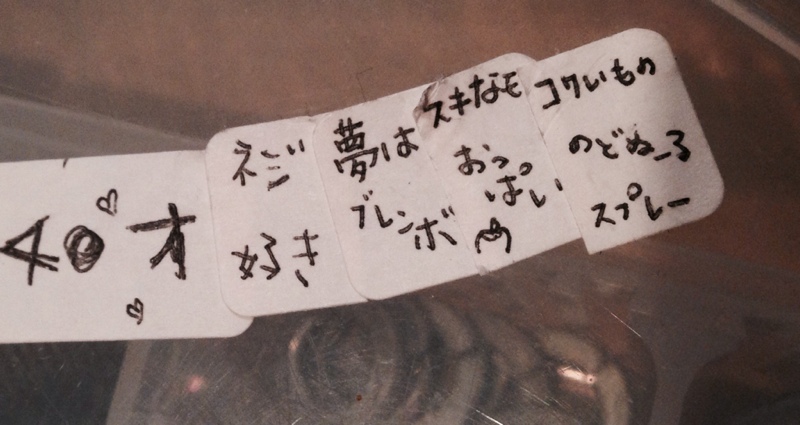 40才
ネジ
好き
夢は
ブレンボ
スキなモ
おっ
ぱい
コワいもの
のどぬ〜る
スプレー